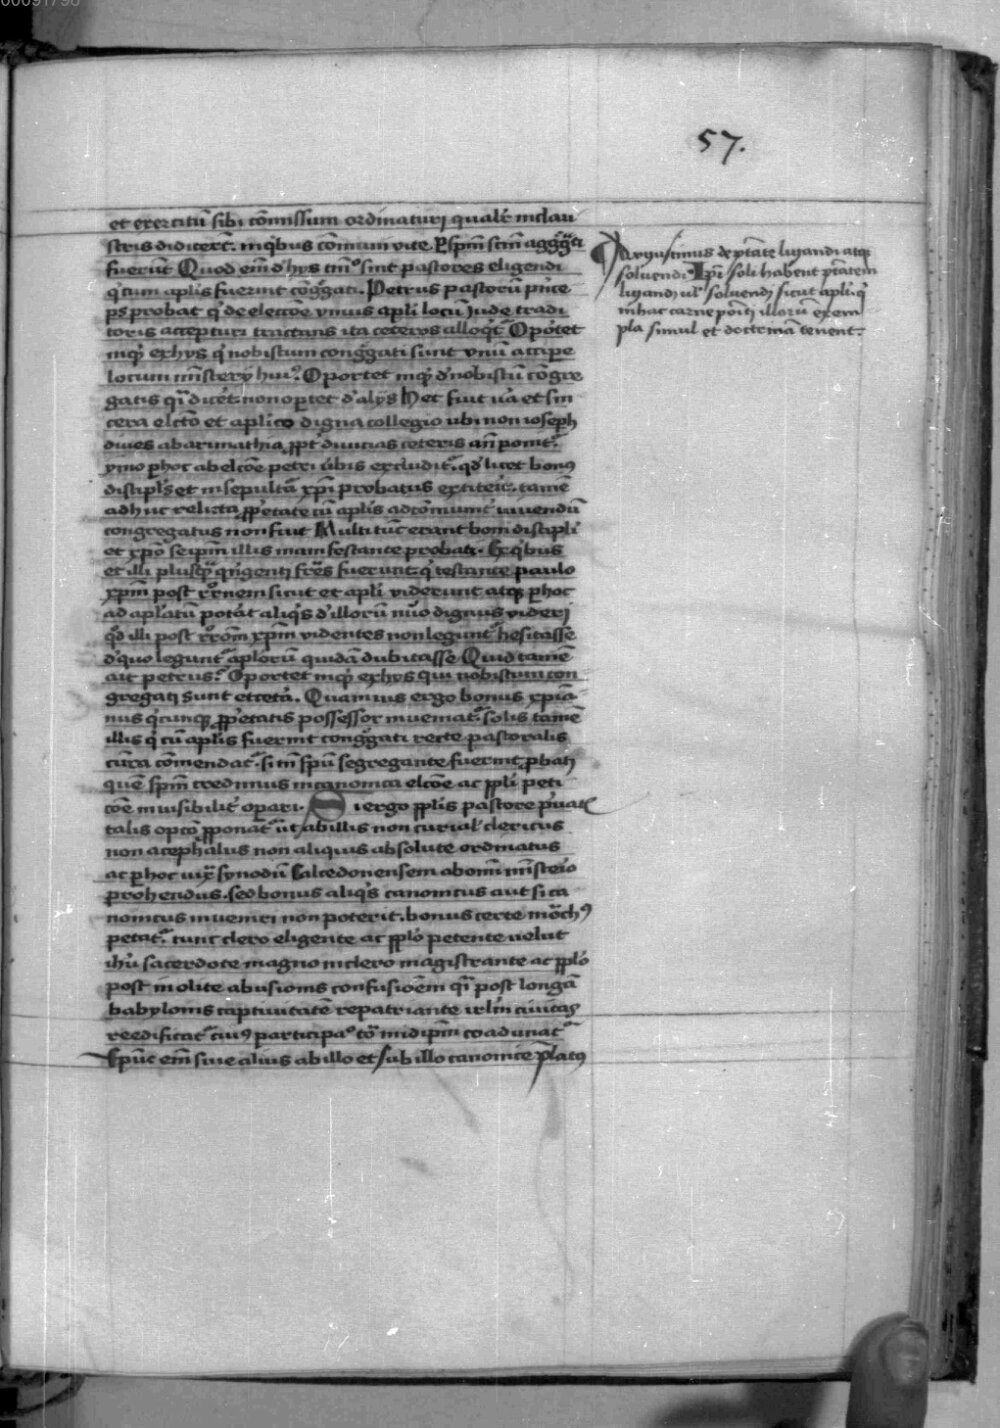 00091796
57.
et exercitū sibi cōmissum ordinaturi qualr̄ in clau
stris didicerc̄. in qͥbus cōmuni vite. ꝑ spm̄ scm̄ aggͣgͣti
fuerūt Quod em̄ dʼ hys tm̄ᵒ sint pastores eligendi
qͥ cum aplīs fuerint cōgͣgati. Petrus pastorū prīce
ps probat qͥ de eleccōe vnius apli locū Jude tradi
toris accepturi tractans ita ceteros alloqͥt᷑ Opōtet
inqͥ ex hys qͥ nobiscum congͣgati sunt vnū accipe
locum mīsterÿ huiꝰ. Oportet inqͥ dʼ nobiscū cōgre
gatis qͣi dicēt non oꝑtet dʼ alys Hec fuit v̄a et sin
cera elcc̄o et aplico digna collegio vbi non ioseph
diues ab arimathia ꝓpt᷑ diuicias ceteris an̄ponit᷑
ymo ꝑ hoc ab elcōe petri v̄bis excludit᷑. qd̓ licet bonꝰ
discipls̄ et in sepultā xp̄i probatus extiterit. tamē
adhuc relicta ꝓpͥetate cū aplīs ad cōmunit᷑ viuendū
congregatus non fuit Multi tūc erant boni discipli
et xpō seip̄m illis manifestante probati. Ex qͥbus
et illi plusqͣ qͥngenti fr̄es fuerunt qͥ testante paulo
xp̄m post rͬrnem sicut et apli viderunt atqꝫ ꝑ hoc
ad aplatū potāt aliqͥs dʼ illorū nūo dignus videri
qd̓ illi post rͬrōm xp̄m videntes non legunt᷑ hesitasse
dʼ quo legunt᷑ aplorū quidā dubitasse Quid tamē
ait petrus? Oportet inqͥ ex hys qui nobiscum con
gregati sunt et cetā. Quamuis ergo bonus xpiā
nus qͥcunqꝫ ꝓpͥetatis possessor inueniat᷑ solis tamē
illis qͥ cū aplīs fuerint congͣgati recte pastoralis
cura cōmendat᷑. si tn̄ spū segregante fuerint ꝓbati
quē spm̄ credimus in canonica elcōe ac ppli peti
cōe inuisibilit᷑ oꝑari. Si ergo pplis pastore pͥuat᷑
talis opc̄o ꝓponat᷑ vt ab illis non curial᷑ clericus
non acephalus non aliquis absolute ordinatus
ac ꝑ hoc iuxͣ synodū Calcedonensem ab omī mīsterio
prohendus. sed bonus aliqͥs canonicus aut si ca
nonicus inueniri non poterit. bonus certe mōchꝰ
petat᷑. tunc clero eligente ac pplo petente velut
ihū sacerdote magno in clero magistrante ac pplo
post molite abusionis confusiōem qͣi post longā
babylonis captiuitatē repatriante irlm̄ ciuitas
reedificat᷑ cuiꝰ participaᵒ eiꝰ in idip̄m coadunat᷑
Tūc em̄ siue alius ab illo et sub illo canonice p̄latꝰ
¶ Augustinus de ptāte ligandi atqꝫ
soluendi Ip̄i soli habent ptātem
ligandi ul᷑ soluendi sicut apli qͥ
in hac carne pōiti illorū exem
pla simul et doctrinā tenent.